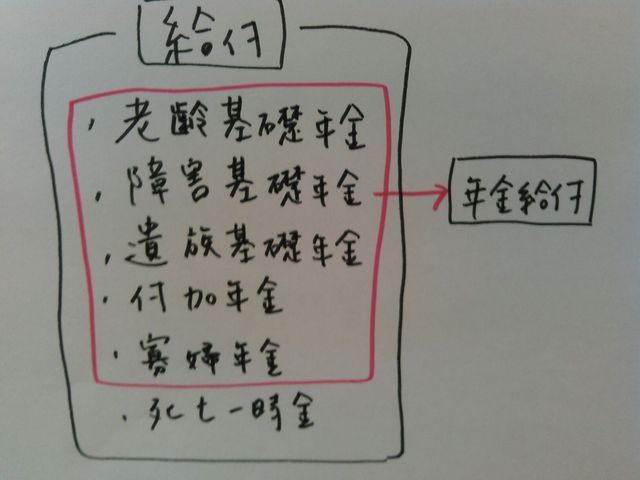 給付
・老齢基礎年金
・障害基礎年金
・遺族基礎年金
・付加年金
・寡婦年金
・死亡一時金
年金給付